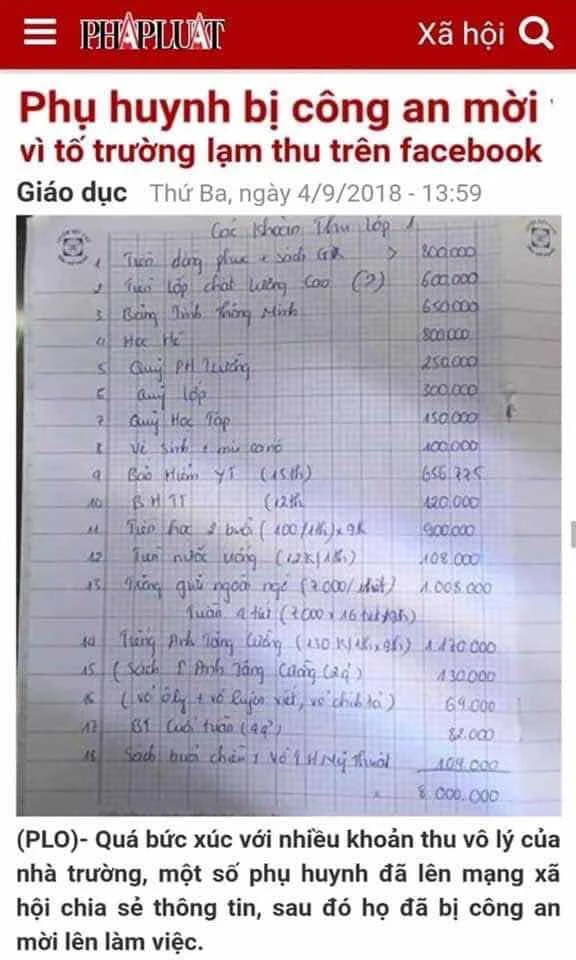 PHÁPLUẬT
Xã hội
Phụ huynh bị công an mời
vì tố trường lạm thu trên facebook
Giáo dục Thứ Ba, ngày 4/9/2018 - 13:59
Các Khoản Thu lớp 1
1 Tiền đồng phục + sách GK 800.000
2 Tiền lớp chất lượng cao (?) 600.000
3 Bảng Tính Thông Minh 650.000
4 Học Hè 800.000
5 Quỹ PH Trường 250.000
6 Quỹ lớp 300.000
7 Quỹ Học Tập 150.000
8 Vệ sinh + 100.000
9 Bảo Hiểm YT (15th) 656.775
10 BHTT (12th 120.000
11 Tiền học 2 buổi (100/1th) x 9th 900.000
12 Tiền nước uống (12K/1th) 108.000
13 Tiếng ngoại ngữ (7.000/1tiết) 1.008.000
Tuần 4 tiết (7.000 x 16 tiết/9th)
14 Tiếng Anh Tăng Cường (130K/1th x 9th) 1.170.000
15 (Sách T Anh Tăng Cường (2q) 130.000
16 (vở ôly + vở luyện viết, vở chính tả) 69.000
17 BT Cuối tuần (4q) 82.000
18 Sách buổi chiều + vở TH Mỹ Thuật 104.000
8.000.000
(PLO)- Quá bức xúc với nhiều khoản thu vô lý của
nhà trường, một số phụ huynh đã lên mạng xã
hội chia sẻ thông tin, sau đó họ đã bị công an
mời lên làm việc.